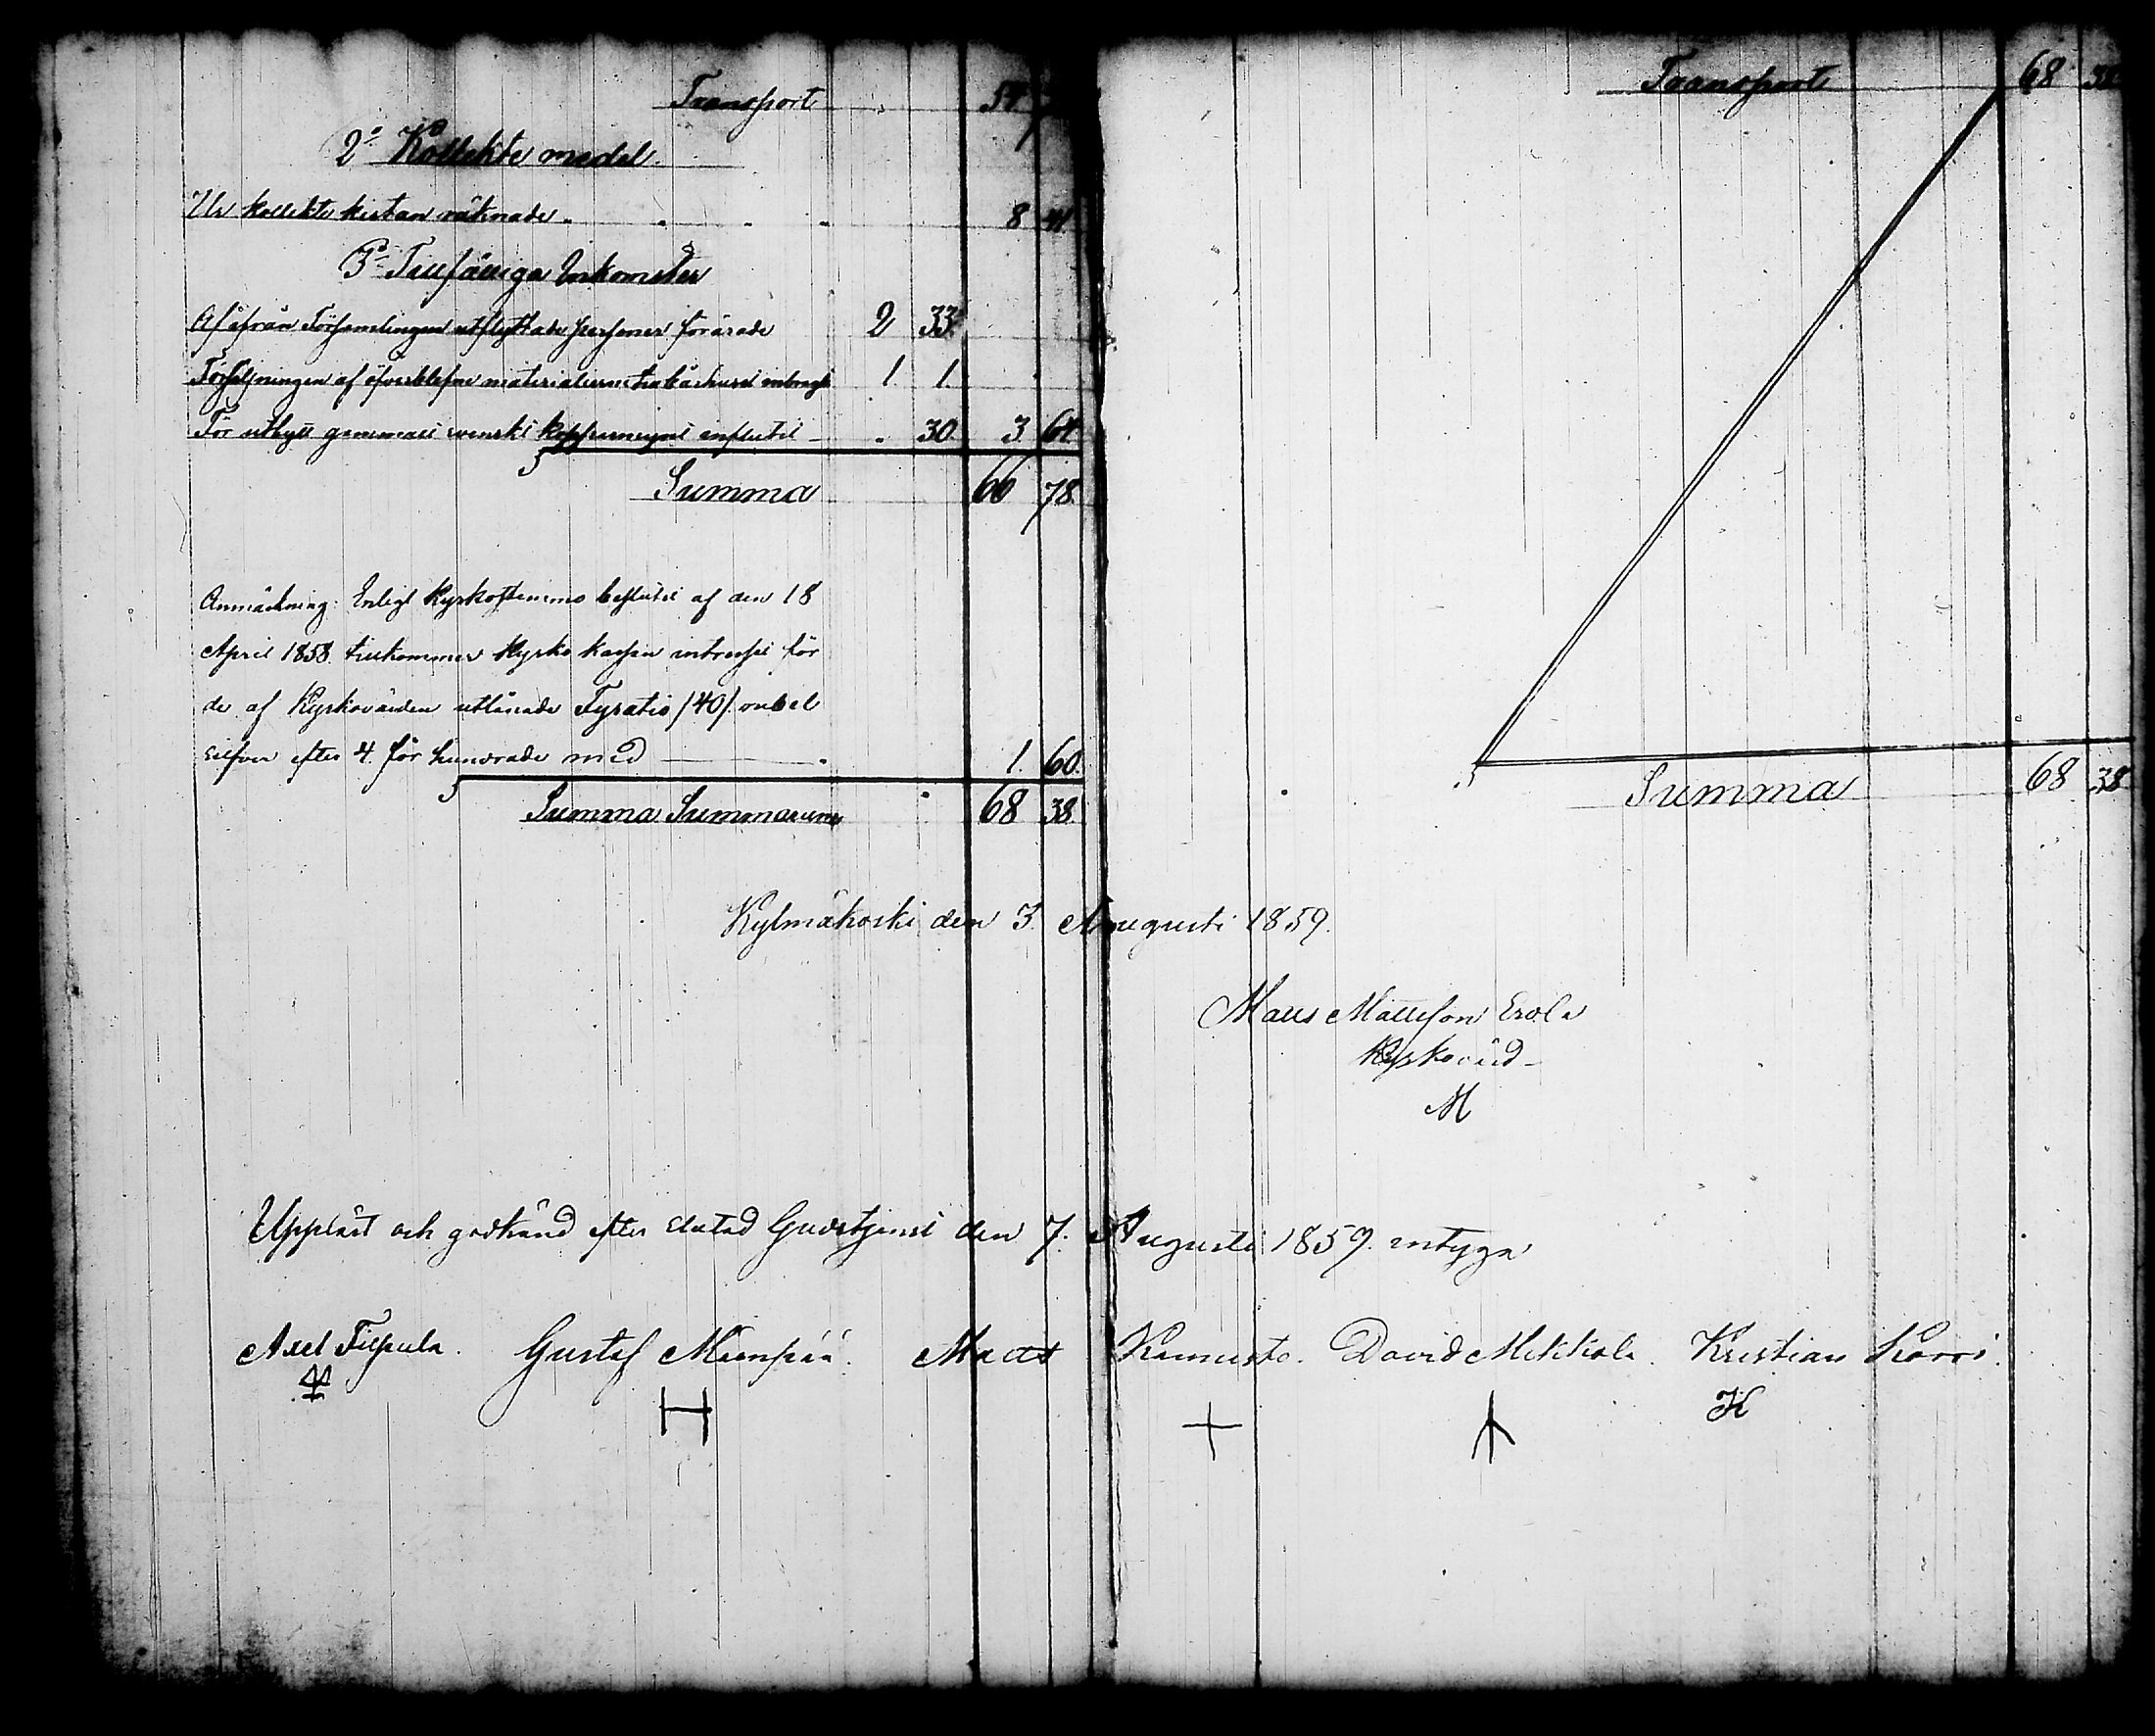 Transport 54
2º Kollekte medel.
Ur kollekte kistan räknade 8 41.
3º Tillfälliga Inkomster
Af ifrån Församlingen utflyttade personer förärade 2 33.
Försäljningen af öfverblefne materialier inbragt 1. 1.
För utbytt gammalt svenskt kopparmynt influtit 30. 3. 64.
Summa 66 78.
Anmärkning: Enligt Kyrkostämmo beslutet af den 18
April 1858. tillkommer Kyrko kassan intresset för
de af Kyrkovärden utlånade Fyratio /40/ rubel
silfver efter 4. för hundrade med 1. 60.
Summa Summarum 68 38.
Transport 68 38
Summa 68 38
Kylmäkoski den 3. Augusti 1859.
Matts Mattsson Erola
Kyrkovärd
M
Uppläst och godkänd efter slutad Gudstjenst den 7. Augusti 1859. intyga
Axel Tilpula. Gustaf Mäenpää. Matts Kannisto. David Mikkola. Kristian Korri.
H + K